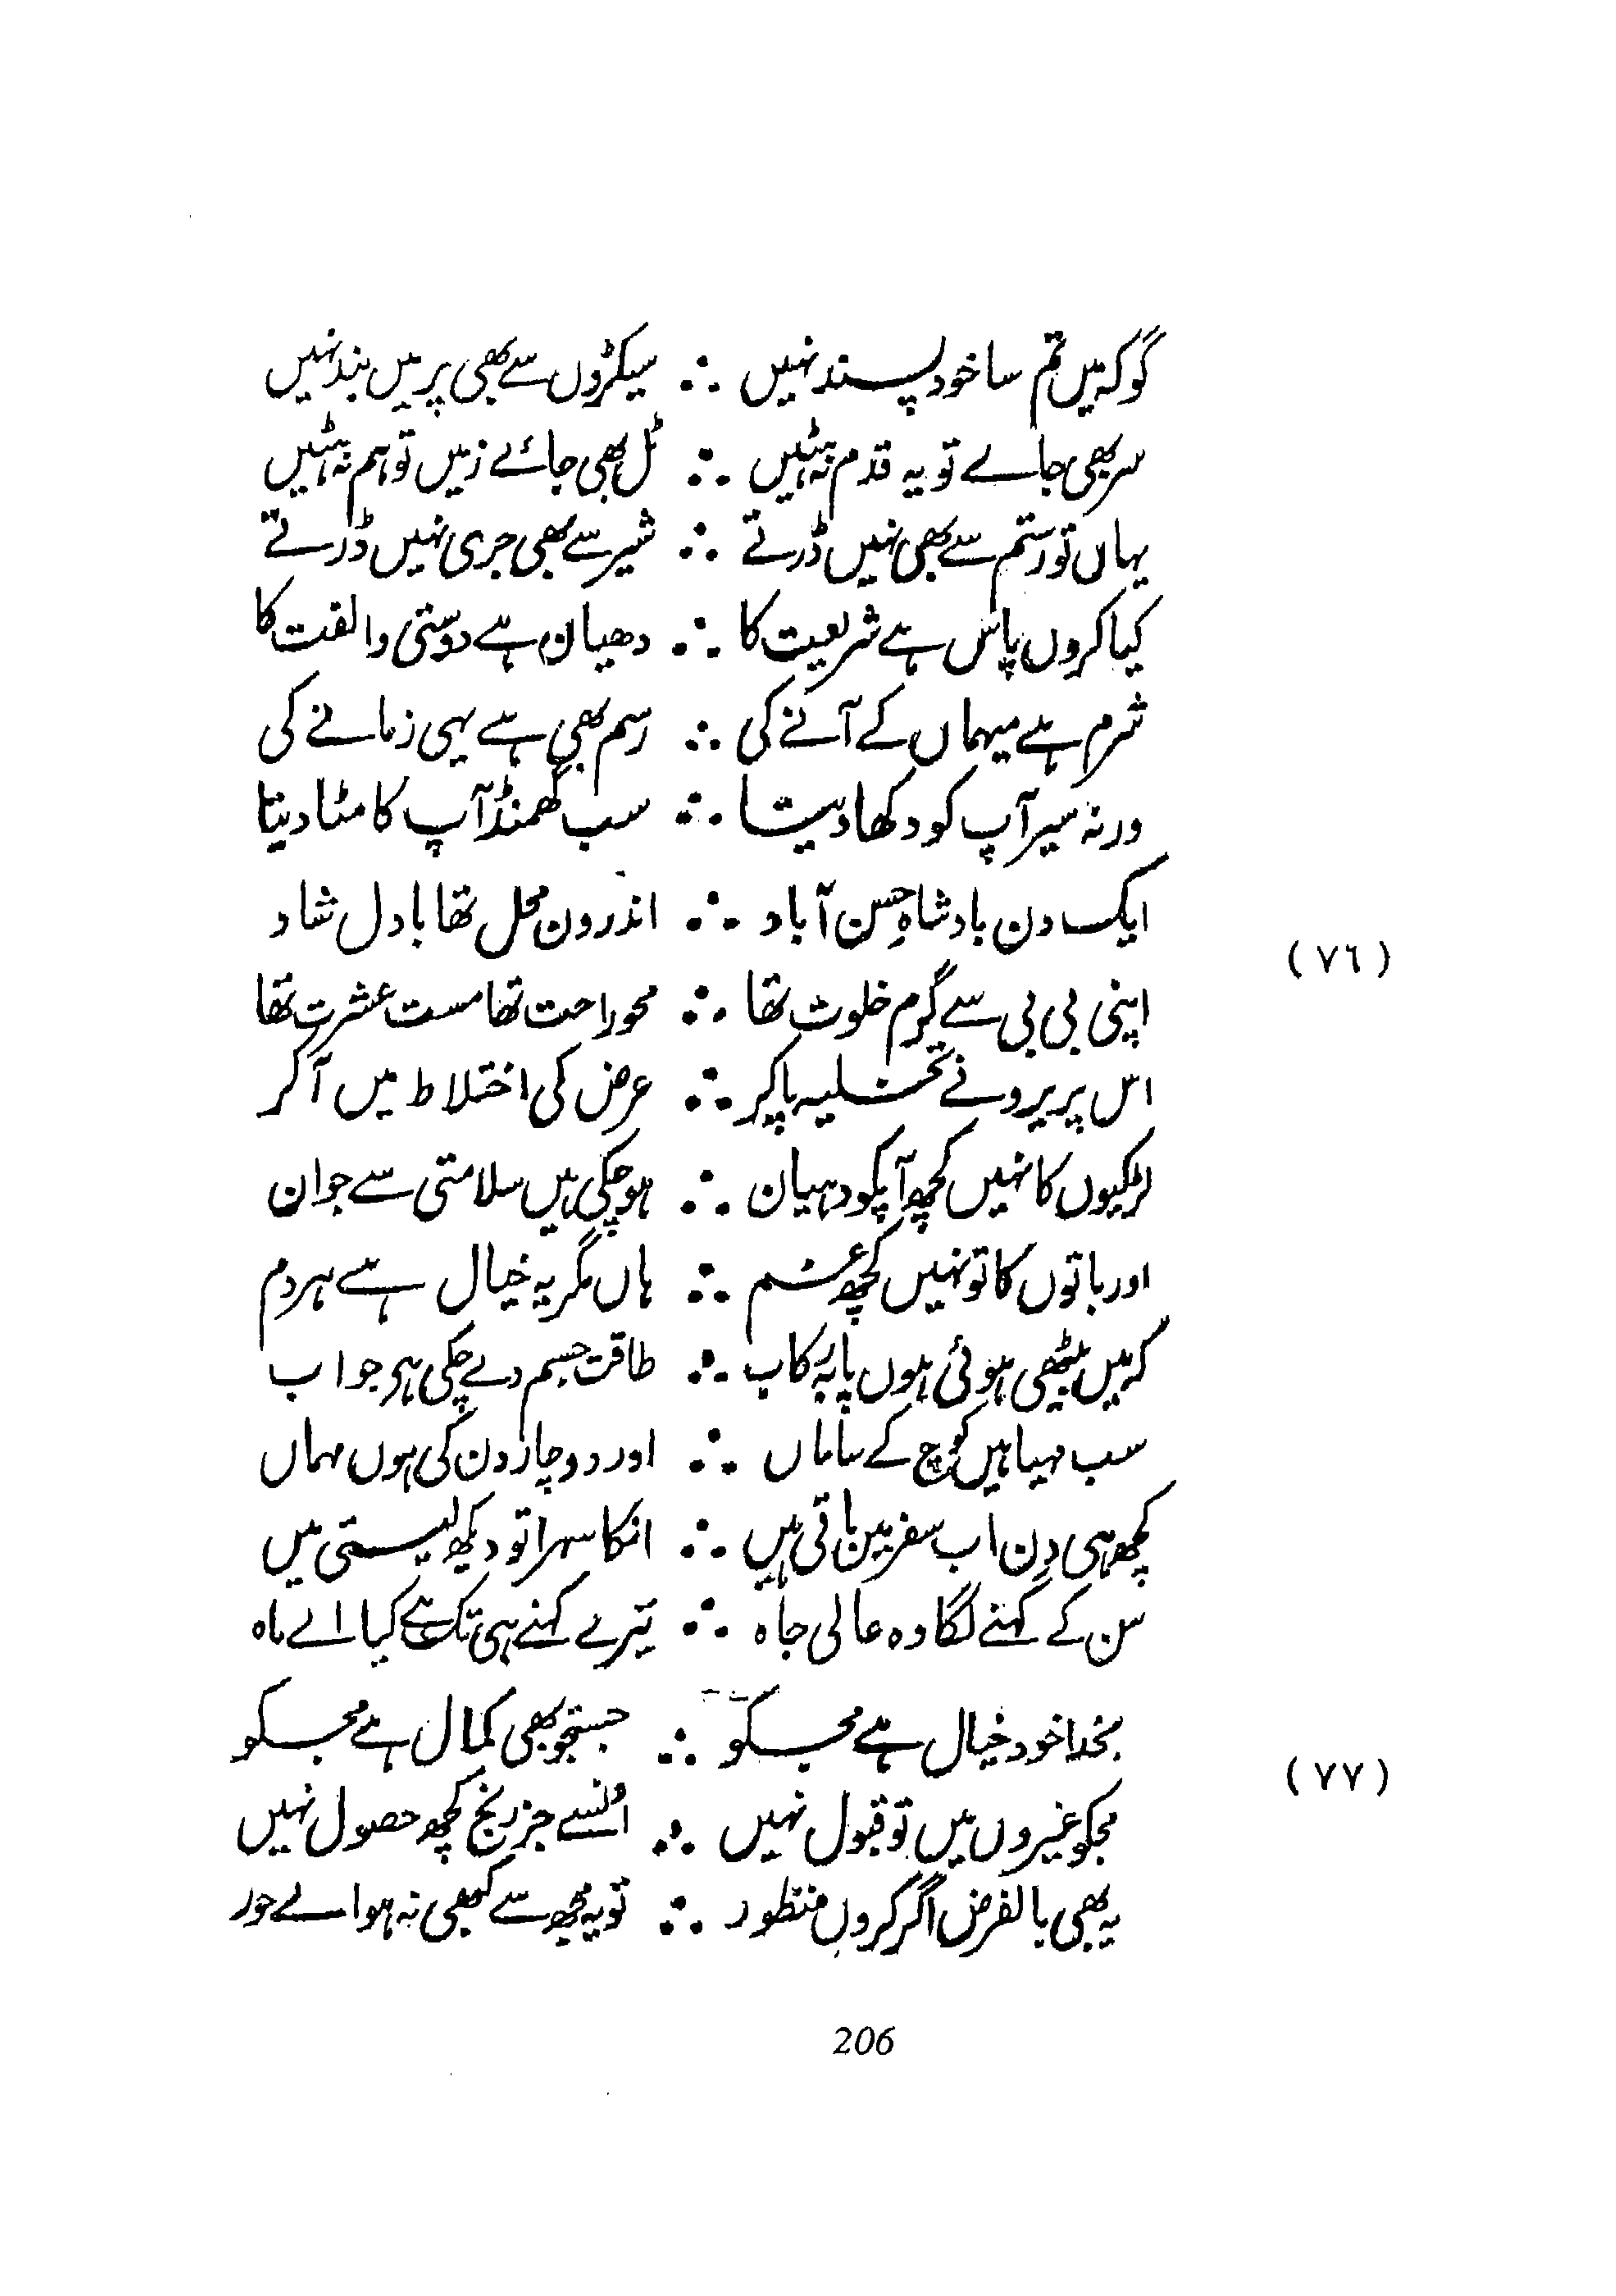 گو کہ میں تم سا خود پسند نہیں ∴ سیکڑوں سے بھی پر میں بند نہیں
سر بھی جاے تو یہ قدم نہ ہٹیں ∴ ٹل بھی جائے زمیں تو ہم نہ ہٹیں
یہاں تو رستم سے بھی نہیں ڈرتے ∴ شیر سے بھی جری نہیں ڈرتے
کیا کروں پاس ہے شریعت کا ∴ دھیان ہے دوستی و الفت کا
شرم ہے میہماں کے آنے کی ∴ رسم بھی ہے یہی زمانے کی
ورنہ سیر آپ کو دکھا دیتا ∴ سب گھمنڈ آپ کا مٹا دیتا
ایک دن بادشاہِ حسن آباد ∴ اندرون محل تھا با دل شاد
(٧٦)
اپنی بی بی سے گرم خلوت تھا ∴ محو راحت تھا مست عشرت تھا
اس پریرو نے تخلیہ پا کر ∴ عرض کی اختلاط میں آ کر
لڑکیوں کا نہیں کچھ آپکو دہیان ∴ ہو چکی ہیں سلامتی سے جوان
اور باتوں کا تو نہیں کچھ غم ∴ ہاں مگر یہ خیال ہے ہر دم
کہ میں بیٹھی ہوئی ہوں پا بہ رکاب ∴ طاقت جسم دے چکی ہی جواب
سب مہیا ہیں کوچ کے ساماں ∴ اور دو چار دن کی ہوں مہماں
کچھ ہی دن اب سفر میں باقی ہیں ∴ انکا سہرا تو دیکھ لیستی میں
سن کے کہنے لگا وہ عالی جاہ ∴ تیرے کہنے ہی تک ہے کیا اے ماہ
بخدا خود خیال ہے مجکو ∴ جستجو بھی کمال ہے مجکو
(٧٧)
مجکو غیروں میں تو قبول نہیں ∴ اُنسے جز رنج کچھ حصول نہیں
یہ بھی بالفرض اگر کروں منظور ∴ تو یہ مجھ سے کبھی نہ ہو اے حور
206